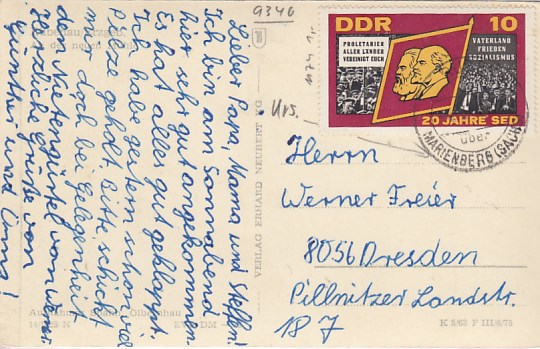 9346
Lieber Papa, Mama und Steffen!
Ich bin am Sonnabend
hier sehr gut angekommen.
Es hat alles gut geklappt.
Ich habe gestern schon viel
Pilze geholt. Bitte schickt
mir doch bei Gelegenheit
den Nierengürtel von Werner.
Herzliche Grüße von
Günther und Oma!
VERLAG ERHARD NEUBERT KG
DDR 10
PROLETARIER
ALLER LÄNDER
VEREINIGT EUCH
VATERLAND
FRIEDEN
SOZIALISMUS
20 JAHRE SED
über
MARIENBERG (SACHS
Urs.
Herrn
Werner Freier
8056 Dresden
Pillnitzer Landstr.
187
K 5/63 F III/6/75